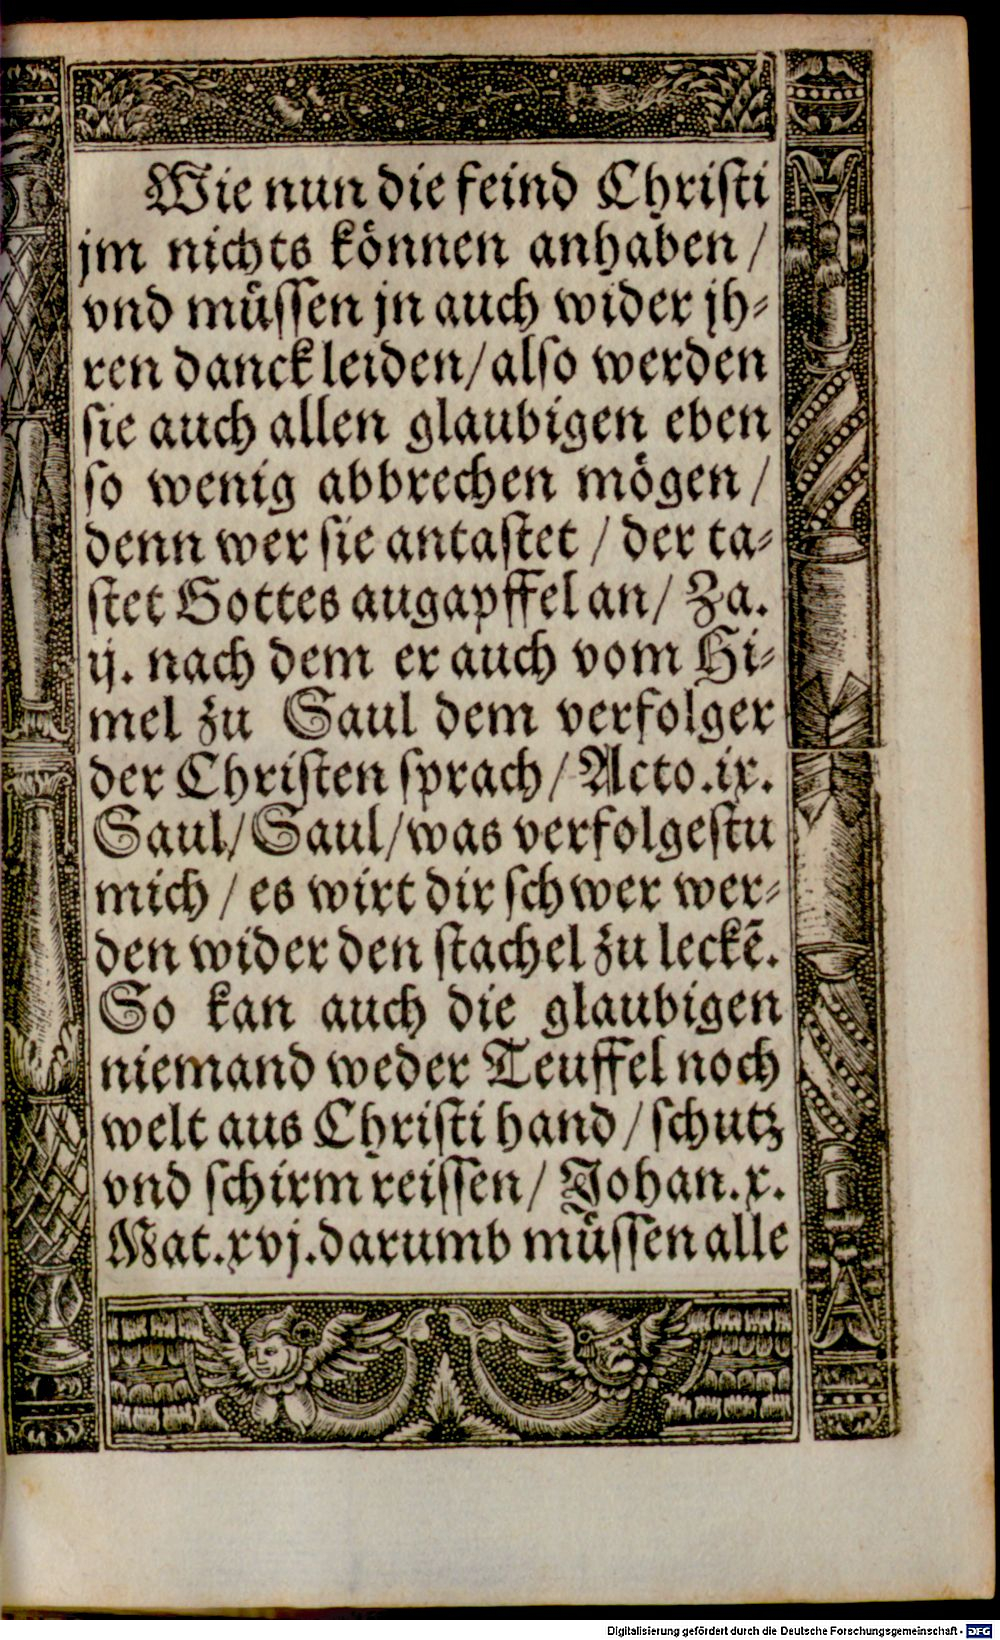 Wie nun die feind Christi
jm nichts können anhaben /
vnd müssen jn auch wider jh-
ren danck leiden / also werden
sie auch allen glaubigen eben
so wenig abbrechen mögen /
denn wer sie antastet / der ta-
stet Gottes augapffel an / Za.
ij. nach dem er auch vom Hi-
mel zu Saul dem verfolger
der Christen sprach / Acto. ix.
Saul / Saul / was verfolgestu
mich / es wirt dir schwer wer-
den wider den stachel zu leckē.
So kan auch die glaubigen
niemand weder Teuffel noch
welt aus Christi hand / schutz
vnd schirm reissen / Johan. x.
Mat. xvj. darumb müssen alle
Digitalisierung gefördert durch die Deutsche Forschungsgemeinschaft - DFG